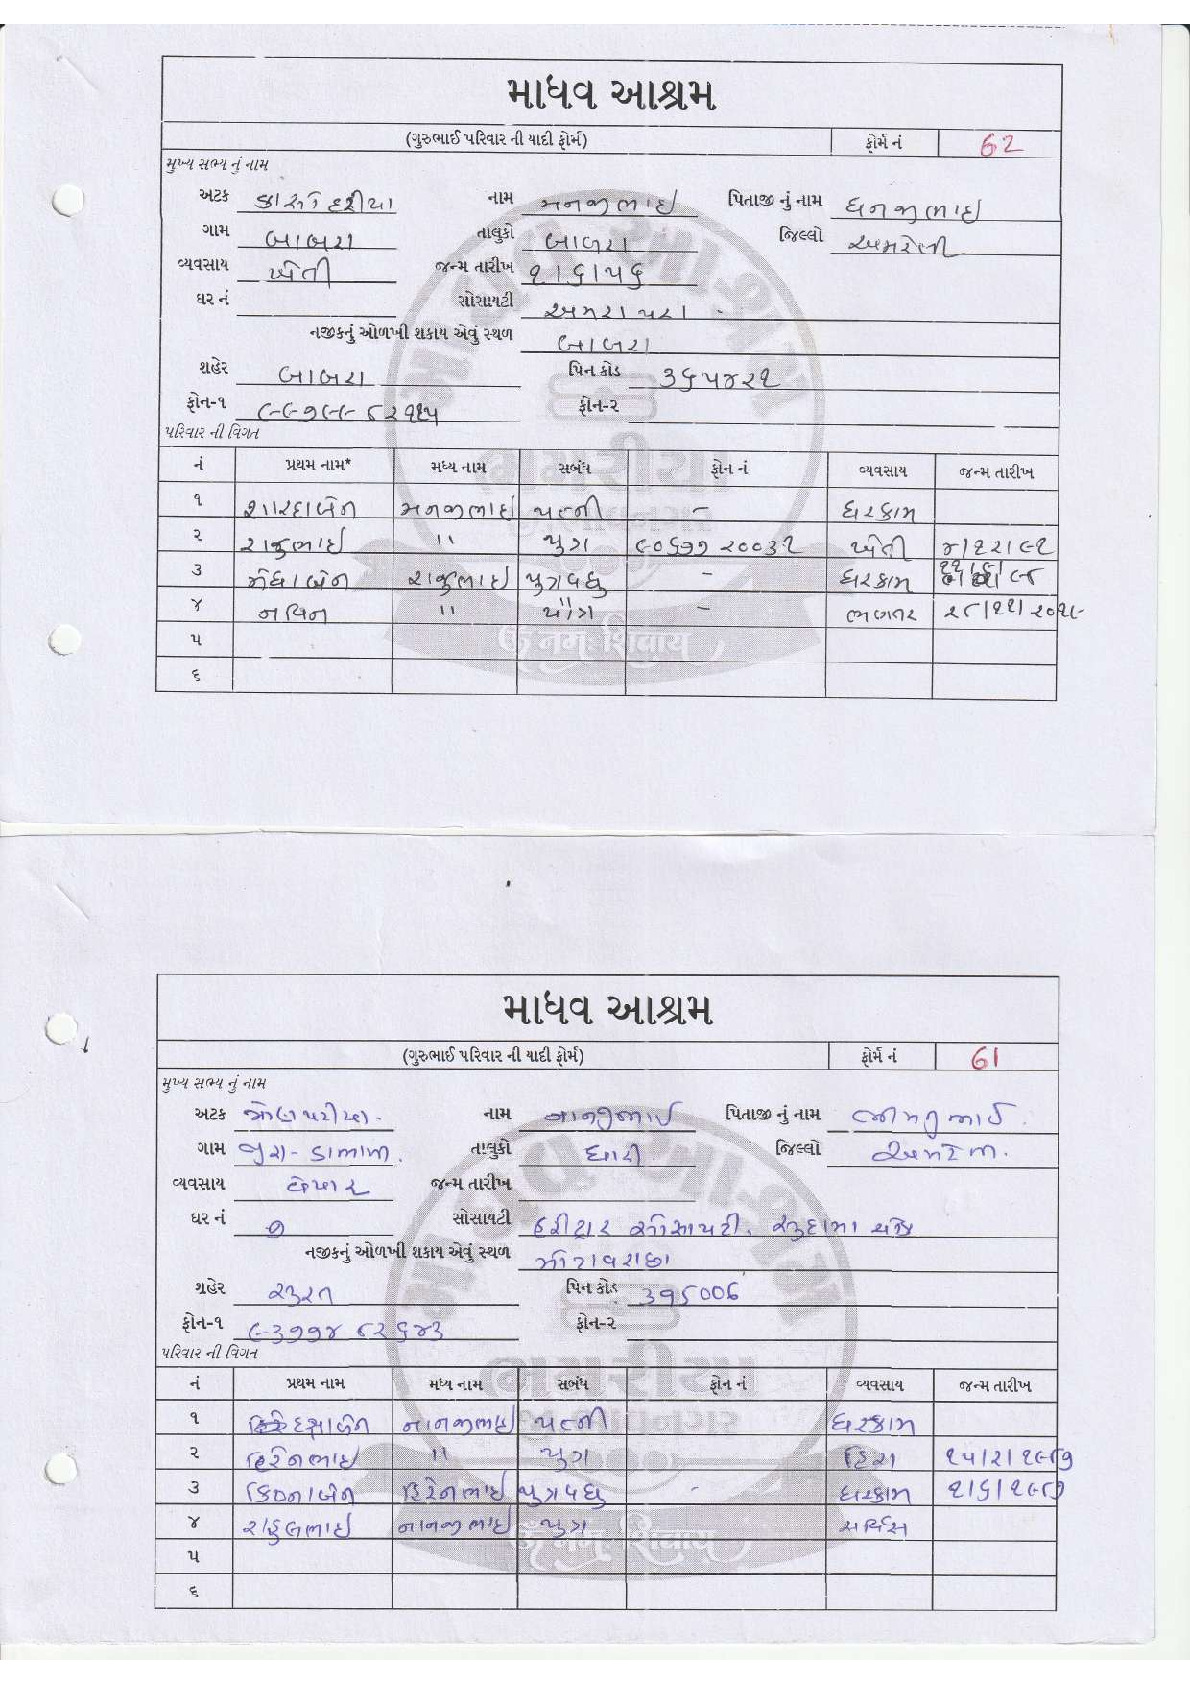 માધવ આશ્રમ
(ગુરુભાઈ પરિવાર ની યાદી ફોર્મ) ફોર્મ નં 62
મુખ્ય સભ્ય નું નામ
અટક નામ મનજીભાઇ પિતાજી નું નામ ધનજીભાઇ
ગામ બાબરા તાલુકો બાબરા જિલ્લો અમરેલી
વ્યવસાય ખેતી જન્મ તારીખ ૧/૬/૫૬
ઘર નં સોસાયટી અમરાપરા
નજીકનું ઓળખી શકાય એવું સ્થળ બાબરા
શહેર બાબરા પિન કોડ ૩૬૫૪૨૧
ફોન-૧ ૯૯૭૯૯૮૨૧૧૫ ફોન-૨
પરિવાર ની વિગત
નં પ્રથમ નામ* મધ્ય નામ સબંધ ફોન નં વ્યવસાય જન્મ તારીખ
૧ શારદાબેન મનજીભાઇ પત્ની - ઘરકામ
૨ રાજુભાઇ " પુત્ર ૯૦૬૭૭ ૨૦૦૩૧ ખેતી ૪/૧૨/૯૧
૩ મેઘાબેન રાજુભાઇ પુત્રવધુ - ઘરકામ
૪ નવિન " પૌત્ર - ભણતર ૨૮/૧૧/૨૦૧૯
૫
૬
માધવ આશ્રમ
(ગુરુભાઈ પરિવાર ની યાદી ફોર્મ) ફોર્મ નં 61
મુખ્ય સભ્ય નું નામ
અટક નામ નાનજીભાઈ પિતાજી નું નામ
ગામ જુના-ડાભાળી. તાલુકો ધારી જિલ્લો અમરેલી.
વ્યવસાય વેપાર જન્મ તારીખ
ઘર નં ૭ સોસાયટી હરીદ્વાર સોસાયટી. સુદામા ચોક
નજીકનું ઓળખી શકાય એવું સ્થળ મોટાવરાછા
શહેર સુરત પિન કોડ ૩૯૫૦૦૬
ફોન-૧ ૯૩૭૭૪ ૮૨૬૪૩ ફોન-૨
પરિવાર ની વિગત
નં પ્રથમ નામ મધ્ય નામ સબંધ ફોન નં વ્યવસાય જન્મ તારીખ
૧ દક્ષાબેન નાનજીભાઇ પત્ની ઘરકામ
૨ હિરેનભાઇ " પુત્ર હિરા ૧૫/૨/૧૯૮૭
૩ કિરનાબેન હિરેનભાઇ પુત્રવધુ - ઘરકામ ૧/૬/૧૯૮૭
૪ રાહુલભાઇ નાનજીભાઇ પુત્ર સર્વિસ
૫
૬